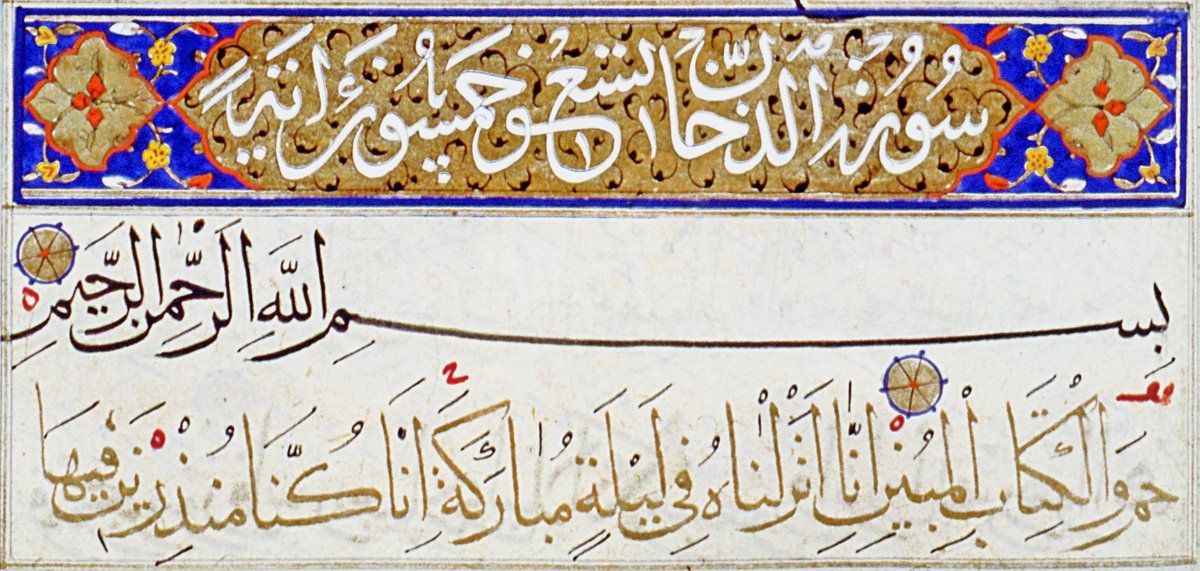 سُورَةُ الدُّخَانِ تِسْعٌ وَخَمْسُونَ اٰيَةً
بِسْمِ اللَّهِ الرَّحْمٰنِ الرَّحِيمِ
حم وَالْكِتَابِ الْمُبِينِ اِنَّا اَنْزَلْنَاهُ فِي لَيْلَةٍ مُبَارَكَةٍ اِنَّا كُنَّا مُنْذِرِينَ فِيهَا